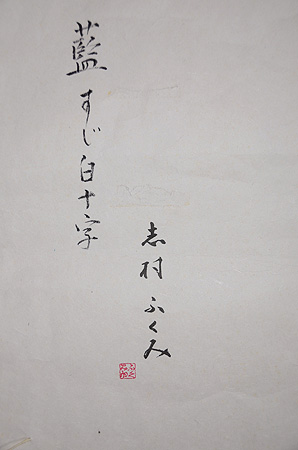 藍すじ白十字
志村ふくみ